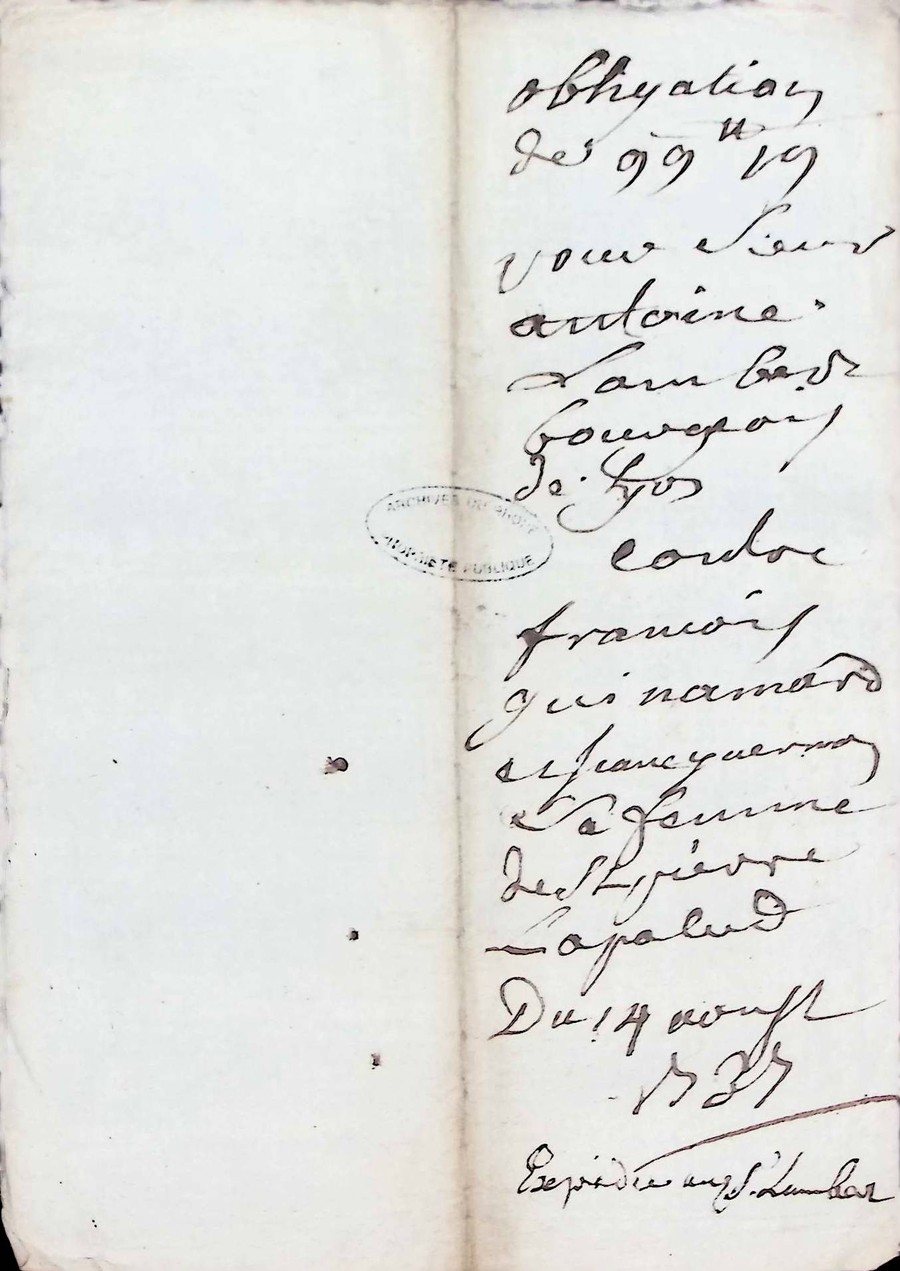 obligation
de 99 ₶ 19
pour Sieur
antoine
Lambert
bourgeois
de Lyon
ARCHIVES DU RHONE
PROPRIETE PUBLIQUE
contre
francois
guinamard
et
sa femme
de St pierre
Lapalud
Du 14 aoust
1737
Expédié au S. Lambert